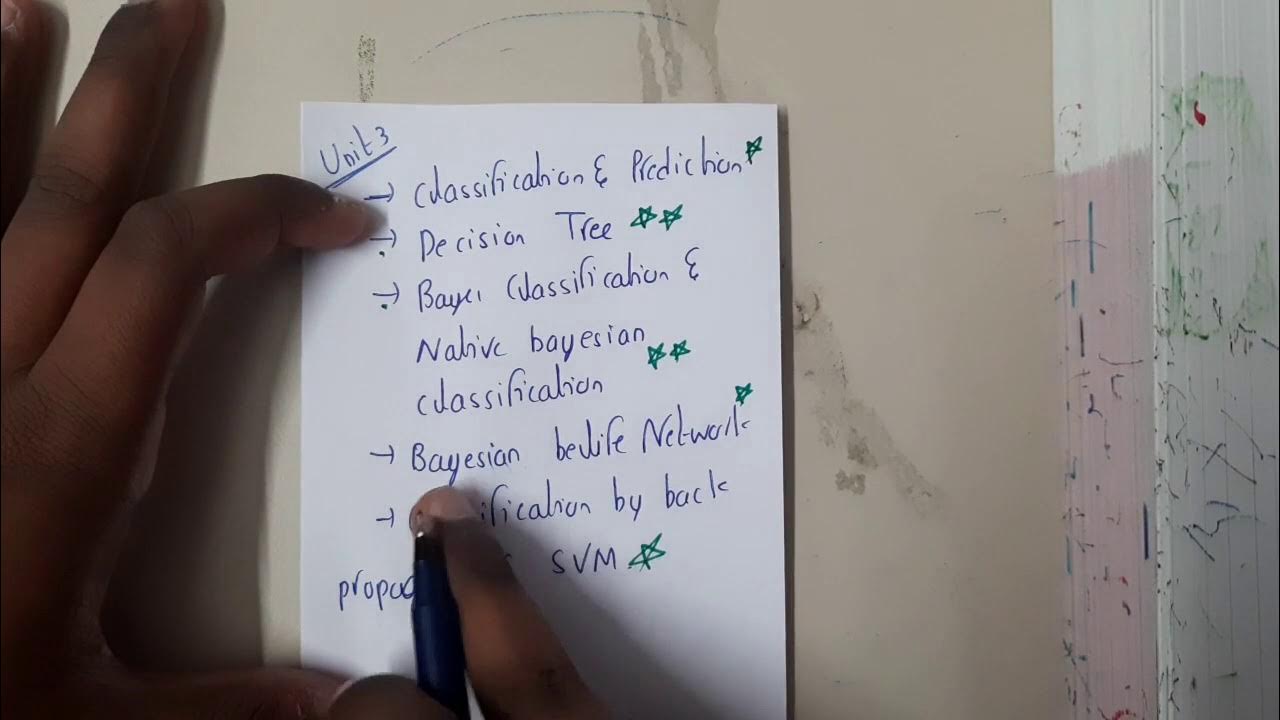 Unit 3
→ Classification & Prediction
→ Decision Tree
→ Bayes Classification &
Native bayesian
classification
→ Bayesian belife Network
→ by back
SVM